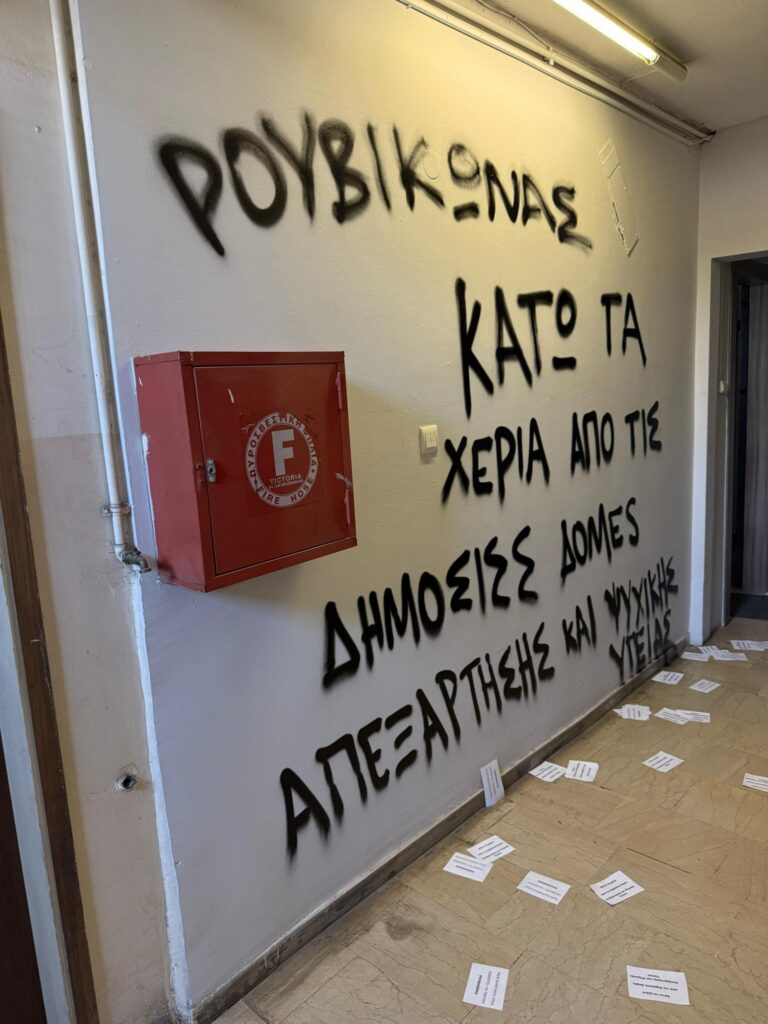 ΡΟΥΒΙΚΩΝΑΣ
ΚΑΤΩ ΤΑ
ΧΕΡΙΑ ΑΠΟ ΤΙΣ
ΔΗΜΟΣΙΕΣ ΔΟΜΕS
ΑΠΕΞΑΡΤΗΣΗΣ ΚΑΙ ΨΥΧΙΚΗΣ
ΥΓΕΙΑΣ
F
VICTORIA
FIRE HOSE